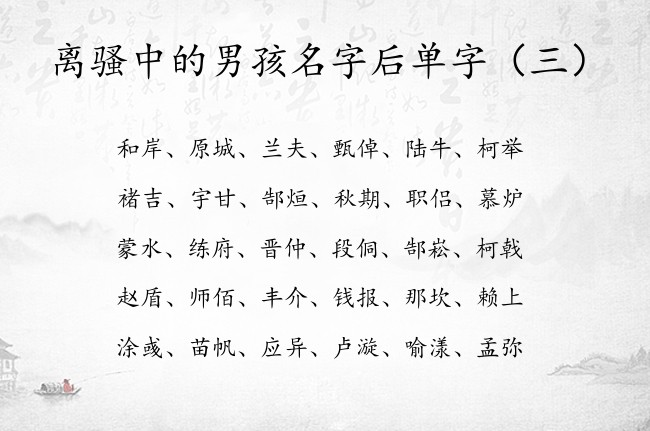 离骚中的男孩名字后单字（三）
和岸、原城、兰夫、甄倬、陆牛、柯举
褚吉、宇甘、郜烜、秋期、职侣、慕炉
蒙水、练府、晋仲、段侗、郜崧、柯戟
赵盾、师佰、丰介、钱报、那坎、赖上
涂彧、苗帆、应异、卢漩、喻漾、孟弥